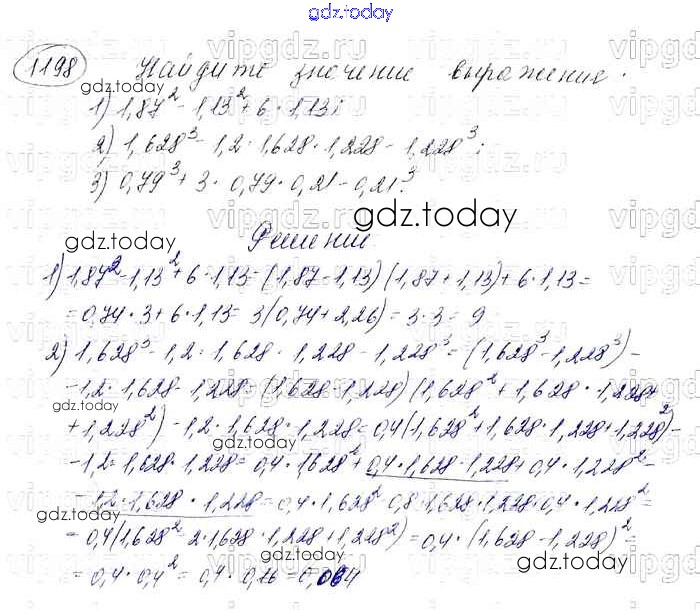 gdz.today
1198 Найдите значение выражения.
1) 1,87² - 1,13² + 6 · 1,13;
2) 1,628³ - 1,2 · 1,628 · 1,228 - 1,228³;
3) 0,79³ + 3 · 0,79 · 0,21 - 0,21³.
Решение
1) 1,87² - 1,13² + 6 · 1,13 = (1,87 - 1,13)(1,87 + 1,13) + 6 · 1,13 =
= 0,74 · 3 + 6 · 1,13 = 3(0,74 + 2,26) = 3 · 3 = 9
2) 1,628³ - 1,2 · 1,628 · 1,228 - 1,228³ = (1,628³ - 1,228³) -
- 1,2 · 1,628 · 1,228 = (1,628 - 1,228)(1,628² + 1,628 · 1,228 +
+ 1,228²) - 1,2 · 1,628 · 1,228 = 0,4(1,628² + 1,628 · 1,228 + 1,228²) -
- 1,2 · 1,628 · 1,228 = 0,4 · 1,628² + 0,4 · 1,628 · 1,228 + 0,4 · 1,228² -
- 1,2 · 1,628 · 1,228 = 0,4 · 1,628² - 0,8 · 1,628 · 1,228 · 0,4 · 1,228² =
= 0,4(1,628² - 2 · 1,628 · 1,228 + 1,228²) = 0,4 · (1,628 - 1,228)² =
= 0,4 · 0,4² = 0,4 · 0,16 = 0,064